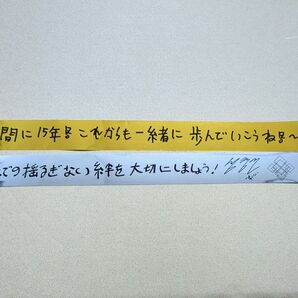 間に15年目 これからも一緒に 歩んでいこうね
での揺るぎない絆を大切にしましょう!